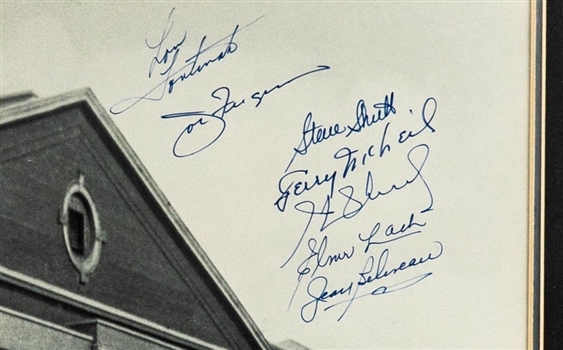 Lou
Fontinato
Steve Shutt
Gerry McNeil
Elmer Lach
Jean Beliveau